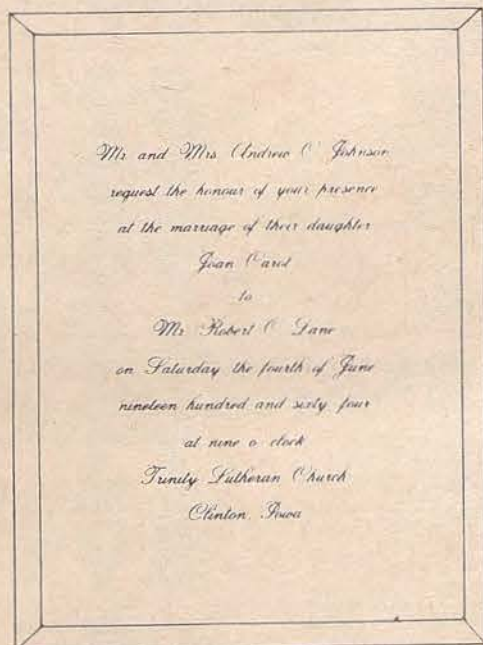 Mr and Mrs Andrew C Johnson
request the honour of your presence
at the marriage of their daughter
Joan Carol
to
Mr Robert C Lane
on Saturday the fourth of June
nineteen hundred and sixty four
at nine o clock
Trinity Lutheran Church
Clinton, Iowa